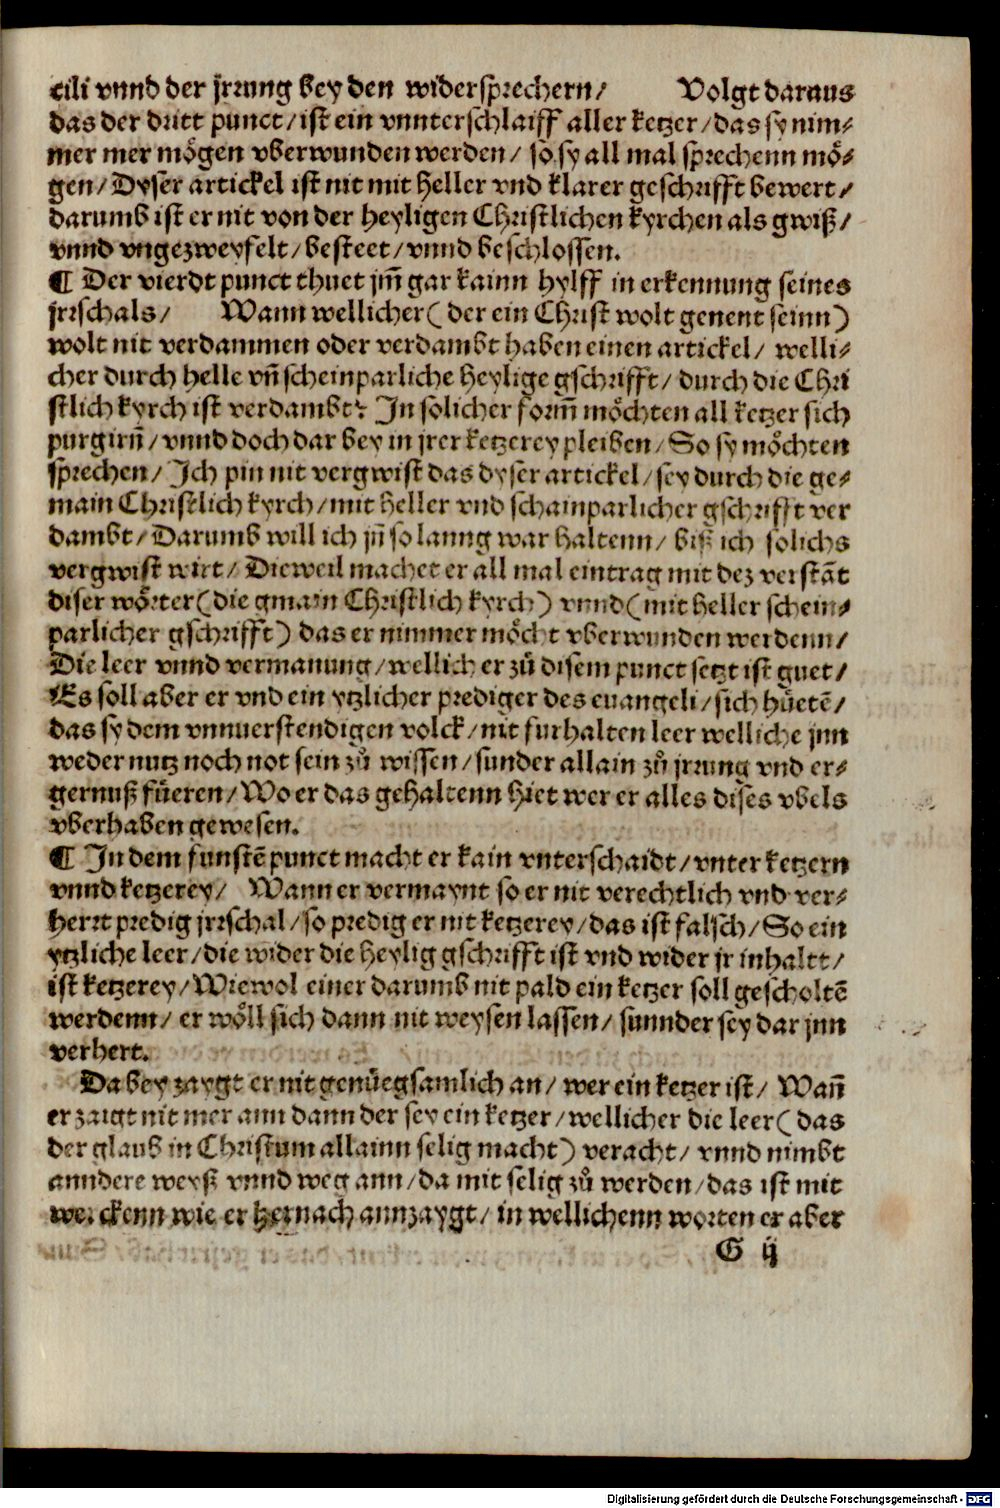 cili vnnd der jrrung bey den widersprechern/ Volgt daraus
das der dritt punct/ist ein vnnterschlaiff aller ketzer/das sy nim⸗
mer mer mögen vberwunden werden/ so sy all mal sprechenn mö⸗
gen/Dyser artickel ist nit mit heller vnd klarer geschrifft bewert/
darumb ist er nit von der heyligen Christlichen kyrchen als gwiß/
vnnd vngezweyfelt/besteet/vnnd beschlossen.
¶ Der vierdt punct thuet jm̃ gar kainn hylff in erkennung seines
jrrschals/ Wann wellicher(der ein Christ wolt genent seinn)
wolt nit verdammen oder verdambt haben einen artickel/ welli⸗
cher durch helle vñ scheinparliche heylige gschrifft/durch die Chri
stlich kyrch ist verdambt? In solicher form̃ möchten all ketzer sich
purgirñ/vnnd doch dar bey in jrer ketzerey pleiben/So sy möchten
sprechen/Ich pin nit vergwist das dyser artickel/sey durch die ge⸗
main Christlich kyrch/mit heller vnd schainparlicher gschrifft ver
dambt/Darumb will ich jñ so lanng war haltenn/ biß ich solichs
vergwist wirt/Dieweil machet er all mal eintrag mit dez verstāt
diser wörter(die gmain Christlich kyrch) vnnd(mit heller schein⸗
parlicher gschrifft) das er nimmer möcht vberwunden werdenn/
Die leer vnnd vermanung/wellich er zů disem punct setzt ist guet/
Es soll aber er vnd ein ytzlicher prediger des euangeli/sich hüetē/
das sy dem vnnuerstendigen volck/nit furhalten leer welliche jnn
weder nutz noch not sein zů wissen/sunder allain zů jrrung vnd er⸗
gernuß füeren/Wo er das gehaltenn hiet wer er alles dises vbels
vberhaben gewesen.
¶ In dem funftē punct macht er kain vnterschaidt/vnter ketzern
vnnd ketzerey/ Wann er vermaynt so er nit verechtlich vnd ver⸗
herrt predig jrrschal/so predig er nit ketzerey/das ist falsch/So ein
ytzliche leer/die wider die heylig gschrifft ist vnd wider jr inhaltt/
ist ketzerey/Wiewol einer darumb nit pald ein ketzer soll gescholtē
werdenn/er wöll sich dann nit weysen lassen/sunnder sey dar jnn
verhert.
Da bey zaygt er nit genüegsamlich an/ wer ein ketzer ist/ Wañ
er zaigt nit mer ann dann der sey ein ketzer/wellicher die leer(das
der glaub in Christum allainn selig macht) veracht/ vnnd nimbt
anndere weyß vnnd weg ann/da mit selig zů werden/das ist mit
werckenn wie er hernach annzaygt/in wellichenn worten er aber
G ij
Digitalisierung gefördert durch die Deutsche Forschungsgemeinschaft - DFG